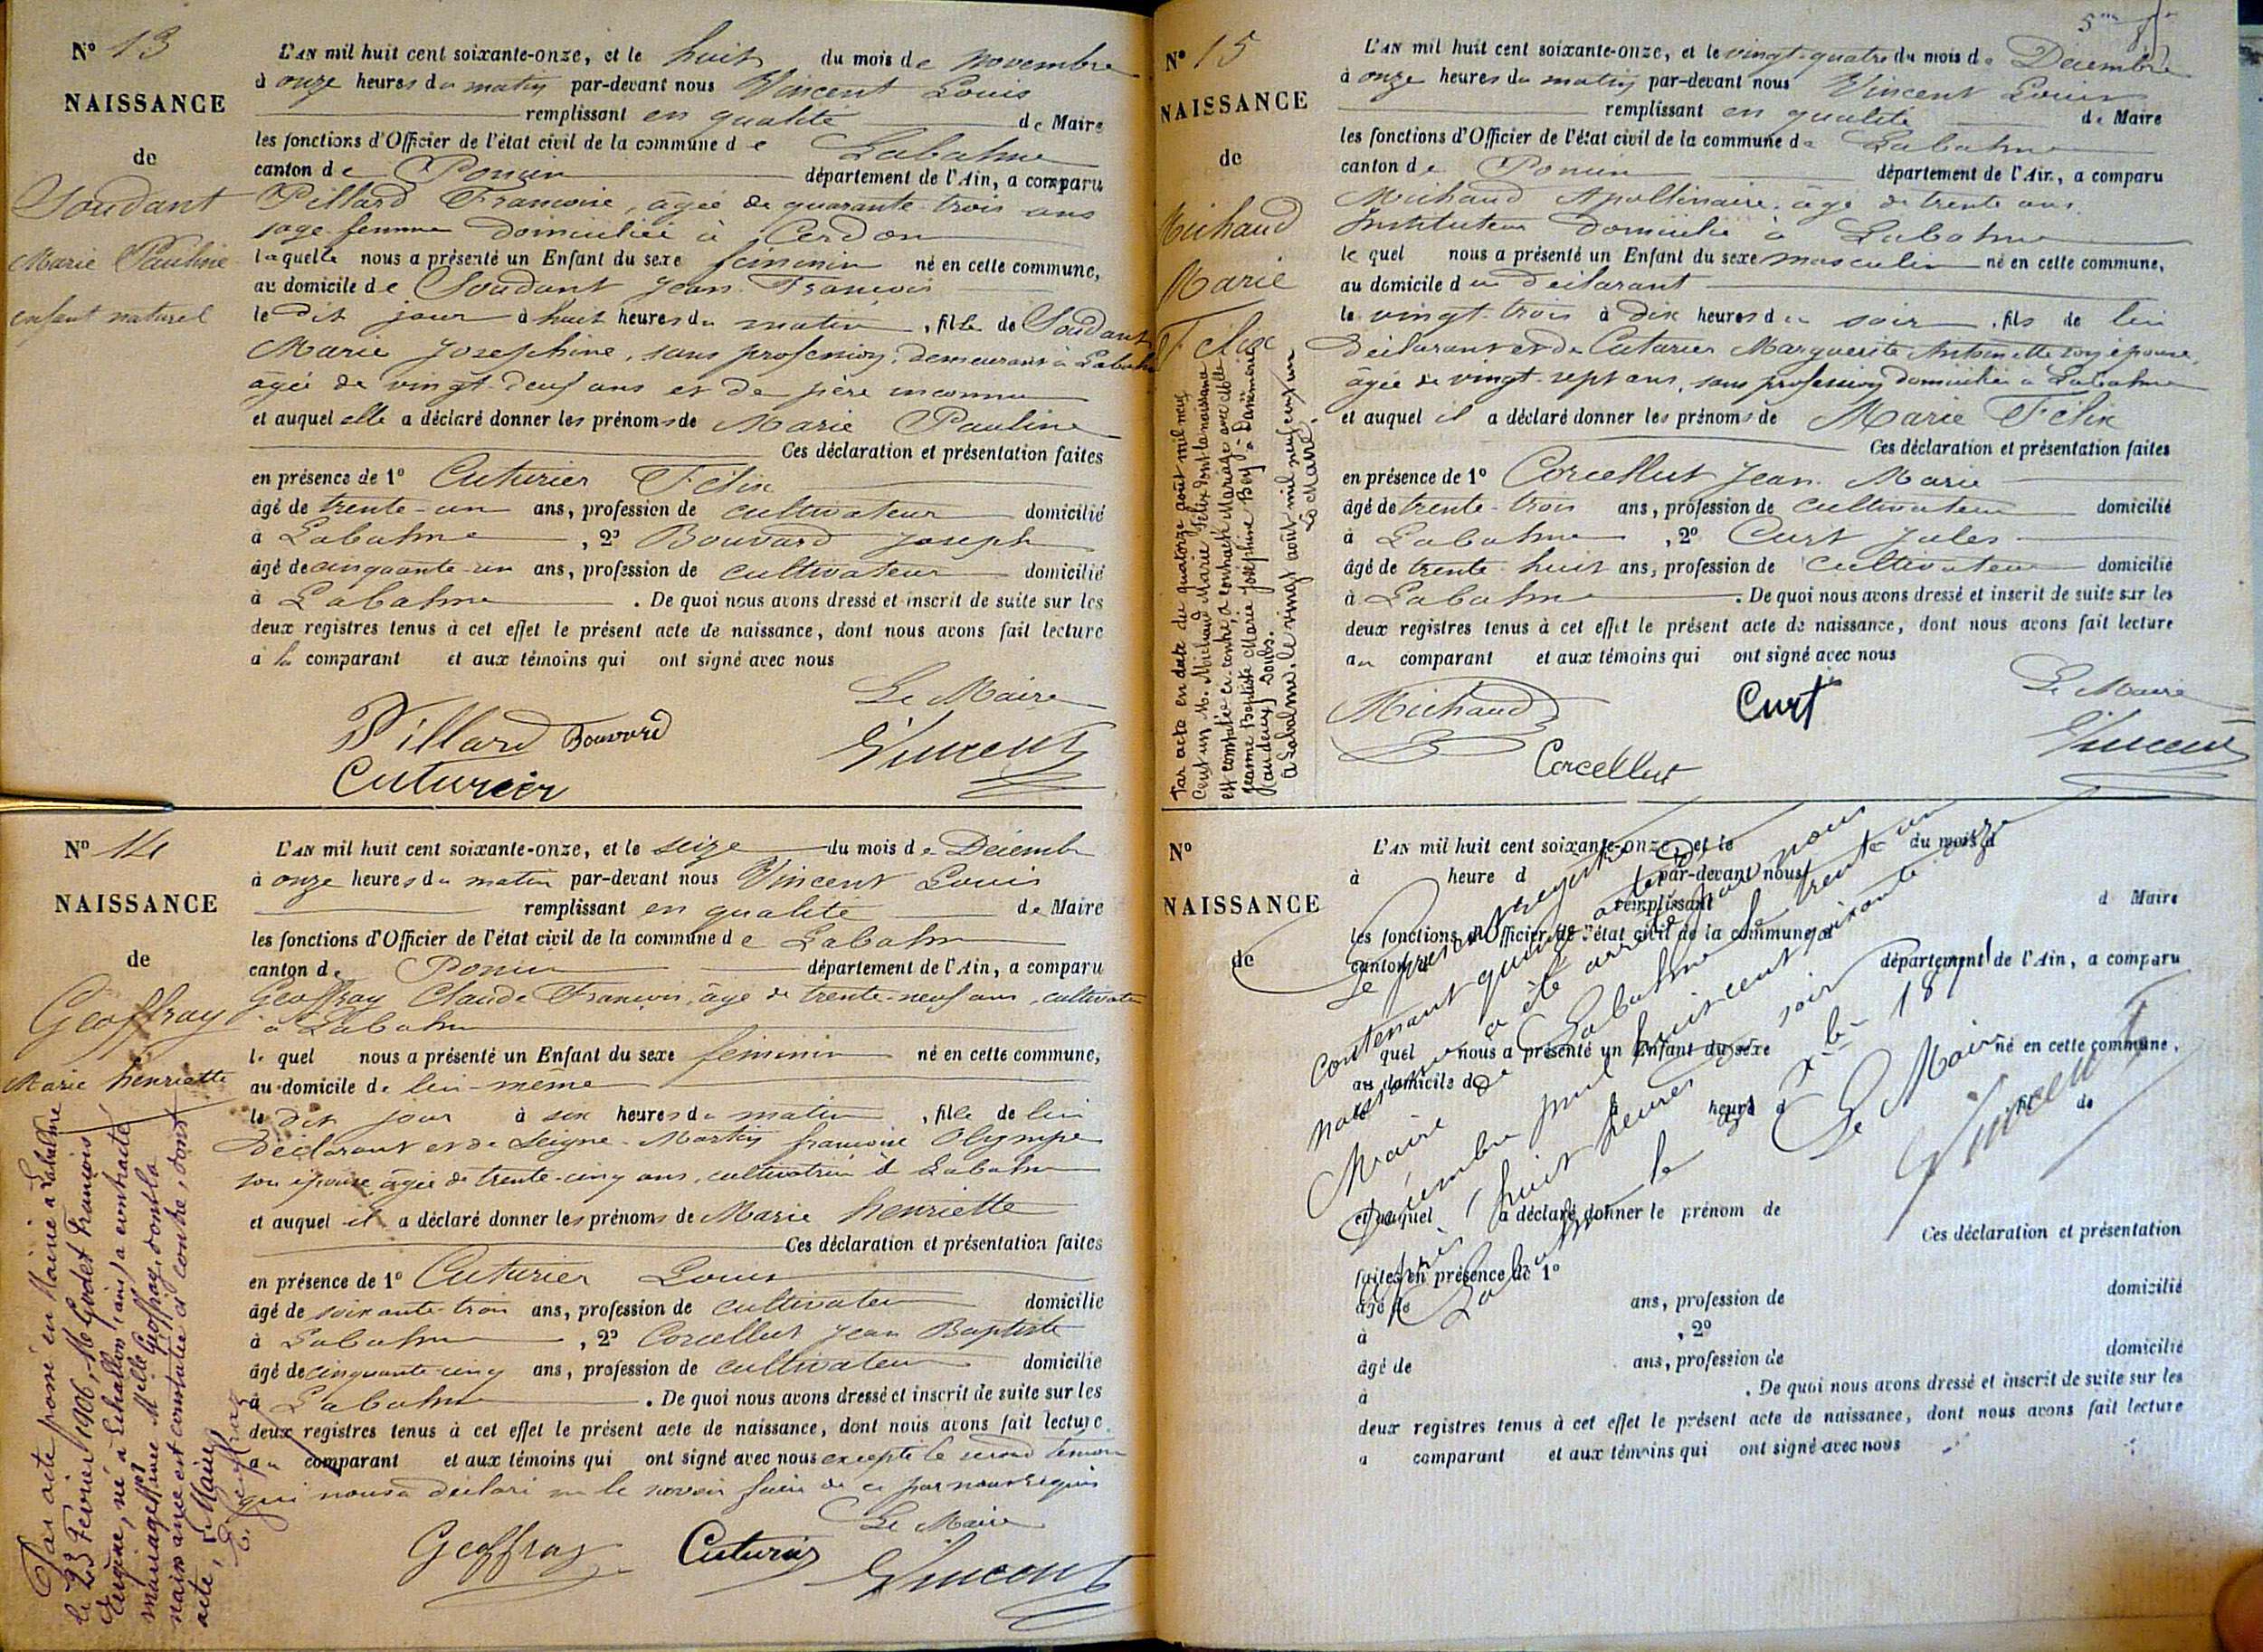 Nº 13
NAISSANCE
de
Soudant
Marie Pauline
enfant naturel
L'AN mil huit cent soixante-onze, et le huit du mois de novembre
à onze heures du matin par-devant nous Vincent Louis
remplissant en qualité de Maire
les fonctions d'Officier de l'état civil de la commune de Labalme
canton de Poncin département de l'Ain, a comparu
Pillard Francoise, âgée de quarante-trois ans
sage-femme domiciliée à Cerdon
laquelle nous a présenté un Enfant du sexe féminin né en cette commune,
au domicile de Soudant Jean François
le dit jour à huit heures du matin, fille de Soudant
Marie Josephine, sans profession, demeurant à Labalme
âgée de vingt-deux ans et de père inconnu
et auquel elle a déclaré donner les prénoms de Marie Pauline
Ces déclaration et présentation faites
en présence de 1º Cuturier Félix
âgé de trente-un ans, profession de cultivateur domicilié
à Labalme, 2º Bouvard Joseph
âgé de cinquante-un ans, profession de cultivateur domicilié
à Labalme. De quoi nous avons dressé et inscrit de suite sur les
deux registres tenus à cet effet le présent acte de naissance, dont nous avons fait lecture
a la comparant et aux témoins qui ont signé avec nous
Le Maire
Pillard Bouvard
Cuturier Vincent
Nº 14
NAISSANCE
de
Geoffray
Marie henriette
Par acte passé en Mairie à Labalme
le 23 Février 1906, M. Godet François
Eugène, né à Echallon (ain) a contracté
mariage avec Mlle Geoffray, dont la
naissance est constatée ci contre, dont
acte, Le Maire,
L'AN mil huit cent soixante-onze, et le seize du mois de Décembr
à onze heures du matin par-devant nous Vincent Louis
remplissant en qualité de Maire
les fonctions d'Officier de l'état civil de la commune de Labalm
canton de Poncin département de l'Ain, a comparu
Geoffray Claude François, âgé de trente-neuf ans, cultivateur
à Labalm
lequel nous a présenté un Enfant du sexe féminin né en cette commune,
au domicile de lui-même
le dit jour à six heures du matin, fille de lui
déclarant et de Seigne-Martin françoise Olympe
son épouse, âgée de trente-cinq ans, cultivatrice à Labalm
et auquel il a déclaré donner les prénoms de Marie henriette
Ces déclaration et présentation faites
en présence de 1º Cuturier Louis
âgé de soixante-trois ans, profession de cultivateur domicilié
à Labalm, 2º Corcellut Jean Baptiste
âgé de cinquante-cinq ans, profession de cultivateur domicilié
à Labalm. De quoi nous avons dressé et inscrit de suite sur les
deux registres tenus à cet effet le présent acte de naissance, dont nous avons fait lecture
au comparant et aux témoins qui ont signé avec nous excepté le second témoin
qui nous a déclaré ne le savoir faire de ce par nous requis
Le Maire
Geoffray Cuturier Vincent
Nº 15
NAISSANCE
de
Michaud
Marie
Félix
Par acte en date du quatorze août mil neuf
cent un M. Michaud Marie Félix dont la naissance
est constatée ci-contre, a contracté Mariage avec delle
Jeanne Baptiste Marie Joséphine Boy à Dannemarie
Doubs.
à Labalme, le vingt août mil neuf cent un
Le Maire,
L'AN mil huit cent soixante-onze, et le vingt-quatre du mois de Décembre
à onze heures du matin par-devant nous Vincent Louis
remplissant en qualité de Maire
les fonctions d'Officier de l'état civil de la commune de Labalme
canton de Poncin département de l'Ain, a comparu
Michaud Apollinaire, âgé de trente ans
Instituteur domicilié à Labalme
lequel nous a présenté un Enfant du sexe masculin né en cette commune,
au domicile du déclarant
le vingt-trois à dix heures du soir, fils de lui
déclarant et de Cuturier Marguerite Antoinette son épouse,
âgée de vingt-sept ans, sans profession, domiciliée à Labalme
et auquel il a déclaré donner les prénoms de Marie Félix
Ces déclaration et présentation faites
en présence de 1º Corcellut Jean-Marie
âgé de trente-trois ans, profession de cultivateur domicilié
à Labalme, 2º Curt Jules
âgé de trente-huit ans, profession de cultivateur domicilié
à Labalme. De quoi nous avons dressé et inscrit de suite sur les
deux registres tenus à cet effet le présent acte de naissance, dont nous avons fait lecture
au comparant et aux témoins qui ont signé avec nous
Le Maire
Michaud Curt
Corcellut Vincent
Nº
NAISSANCE
de
L'AN mil huit cent soixante-onze, et le du mois d
à heure d par-devant nous
remplissant d Maire
les fonctions d'Officier de l'état civil de la commune d
canton d département de l'Ain, a comparu
quel nous a présenté un Enfant du sexe né en cette commune,
au domicile d
le à heure d fil de
et auquel a déclaré donner le prénom de
Ces déclaration et présentation
faites en présence de 1º
âgé de ans, profession de domicilié
à , 2º
âgé de ans, profession de domicilié
à . De quoi nous avons dressé et inscrit de suite sur les
deux registres tenus à cet effet le présent acte de naissance, dont nous avons fait lecture
a comparant et aux témoins qui ont signé avec nous
Le présent registre
contenant quinze actes de
naissance a été arrêté par nous
Maire de Labalme le trente un
Décembre mil huit cent soixante onze
après huit heures du soir
Labalme le Xbre 1871
Le Maire
Vincent